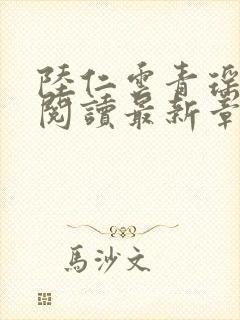 陸仁雲青瑤
閱讀最新章
馬沙文